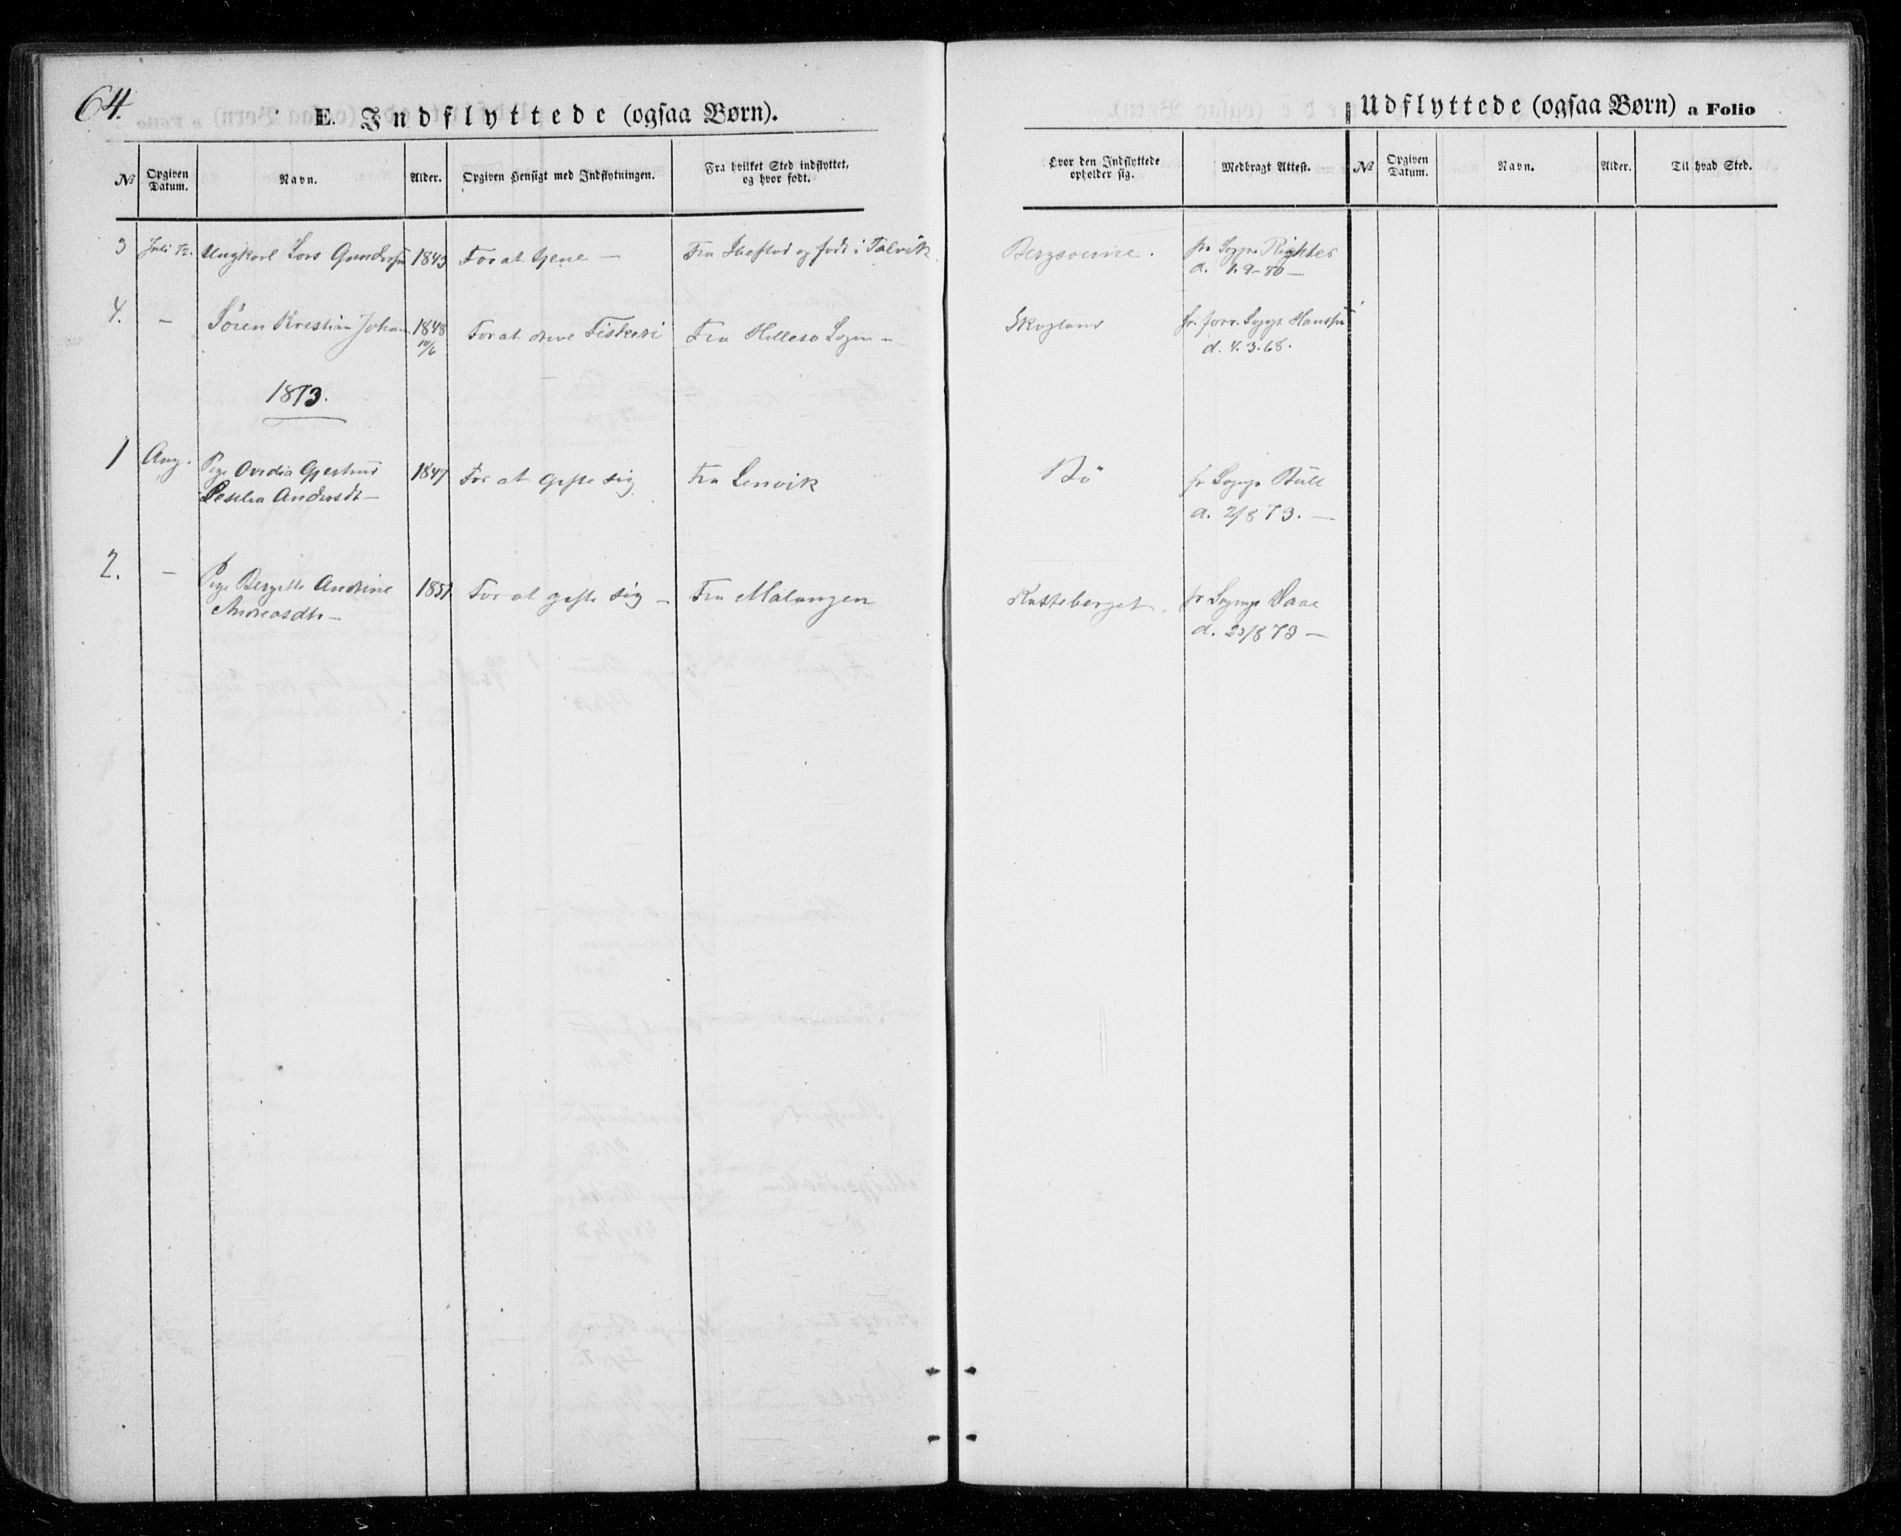 64.
E. Indflyttede (ogsaa Børn).
Udflyttede (ogsaa Børn) a Folio
№ Opgiven Datum. Navn. Alder. Opgiven Hensigt med Indflytningen. Fra hvilket Sted indflyttet, og hvor født. Hvor den Indflyttede opholder sig. Medbragt Attest. № Opgiven Datum. Navn. Alder. Til hvad Sted.
3 Juli 72. Ungkarl Lars 1843 For at tjene — Fra Ibestad og født i Talvik Bergsverne. fr Sogpr Richter
d. 1.9-70 —
4. — Søren Kristian Johan 1848 For at drive Fiskeri Fra Hillesø Sogn Skogland fr. forr. Sogpr Hanssen
10/6 d. 4.3.68.
1873.
1 Aug. Pige Ovedia Gjertrud 1847 For at gifte sig Fra Lenvik Bö fr Sognpr Bull
Andersdt — d. 2/8 73. —
2. — Pige Bergitte Andrine 1851 For at gifte sig — Fra Malangen Kasteberget. fr Sognpr Daae
Andreasdtr — d. 23/8 73 —